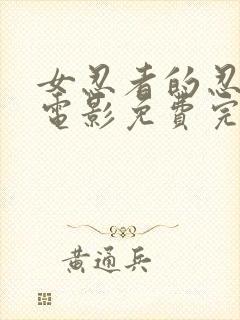 女忍者的忍
電影免費完
黃通兵